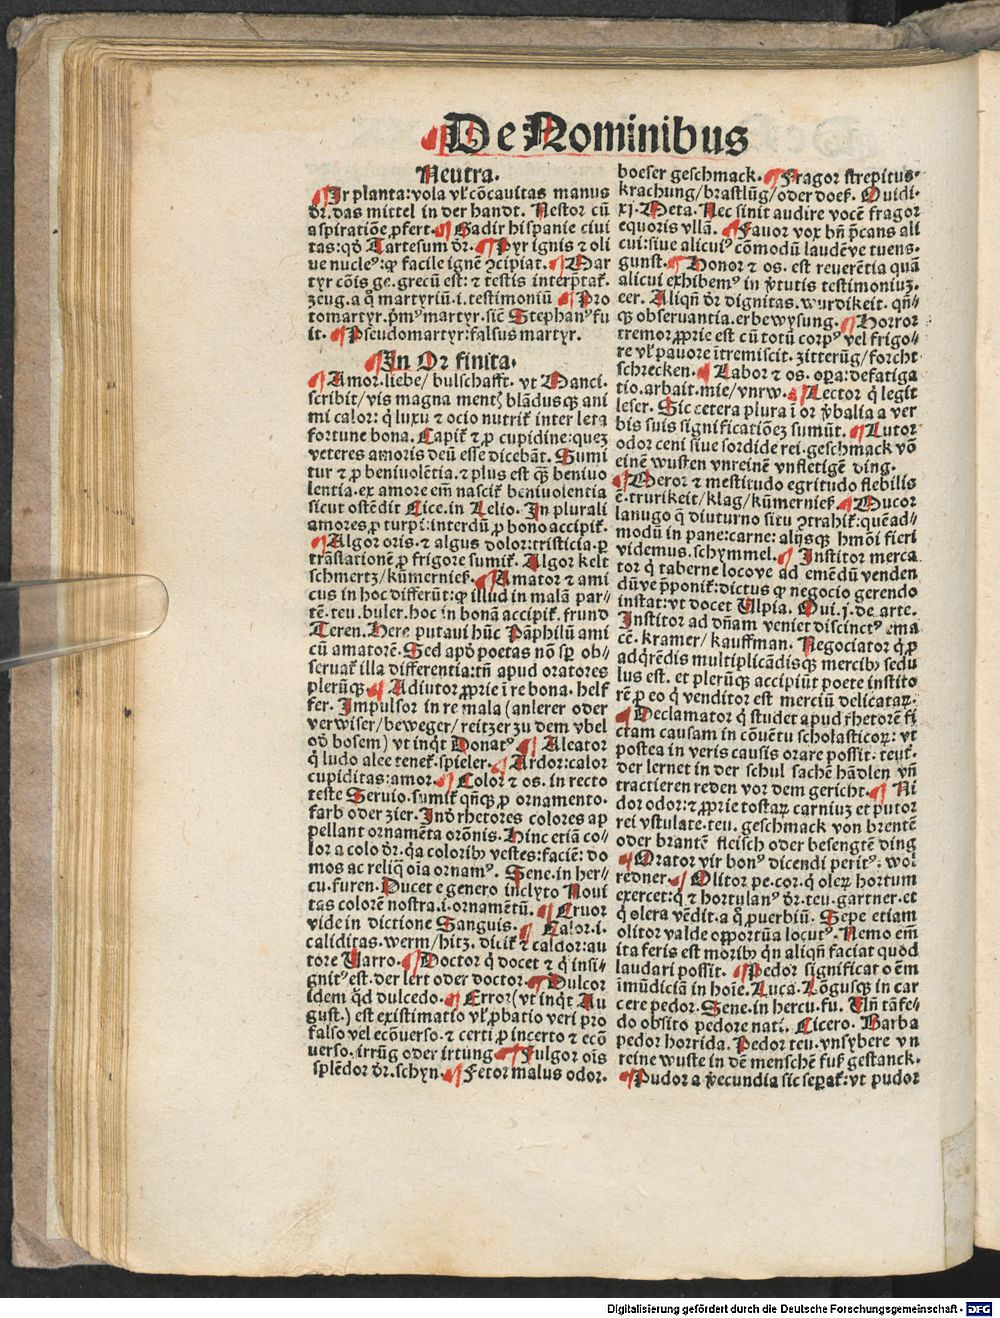 De Nominibus
Neutra.
¶ Ir planta: vola vꝉ cōcauitas manus
dr̄. das mittel in der handt. Nestor cū
aspiratiōe ꝓfert. ¶ Gadir hispanie ciui
tas: qđ Tartesum dr̄. ¶ Pyr ignis ⁊ oli
ue nucleꝰ: ꝙ facile ignē ꝯcipiat. ¶ Mar
tyr cōis ge. grecū est: ⁊ testis interp̄tat̄.
zeug. a q̊ martyriū .i. testimoniū ¶ Pro
tomartyr. p̄mꝰ martyr. sic̄ Stephanꝰ fu
it. ¶ Pseudomartyr: falsus martyr.
¶ In Or finita.
¶ Amor. liebe/ bulschafft. vt Manci.
scribit/ vis magna ment̄ blādusqꝫ ani
mi calor: q̇ luxu ⁊ ocio nutrit̄ inter leta
fortune bona. Capit̄ ⁊ ꝓ cupidine: quez
veteres amoris deū esse dicebāt. Sumi
tur ⁊ ꝓ beniuolētia. ⁊ plus est q̄ꝫ beniuo
lentia. ex amore em̄ nascit̄ beniuolentia
sicut ostēdit Cice. in Lelio. In plurali
amores ꝓ turpi: interdū ꝓ bono accipit̄.
¶ Algor oris. ⁊ algus dolor: tristicia. ꝑ
trāslationē ꝓ frigore sumit̄. Algor kelt
schmertz/ kūmernieß. ¶ Amator ⁊ ami
cus in hoc differūt: ꝙ illud in malā par⸗
tē. teu. buler. hoc in bonā accipit̄. frund
Teren. Here putaui hūc Pāphilū ami
cū amatorē. Sed apđ poetas nō sꝑ ob⸗
seruat̄ illa differentia: tn̄ apud oratores
plerūqꝫ ¶ Adiutor ꝓprie ī re bona. helf
fer. Impulsor in re mala (anlerer oder
verwiser/ beweger/ reitzer zu dem vbel
ođ bosem) vt inq̇t Donatꝰ ¶ Aleator
q̇ ludo alee tenet̄. spieler. ¶ Ardor: calor
cupiditas: amor. ¶ Color ⁊ os. in recto
teste Seruio. sumit̄ qn̄qꝫ ꝓ ornamento.
farb oder zier. Inđ rhetores colores ap
pellant ornamēta orōnis. Hinc etiā co⸗
lor a colo dr̄. q̇a coloribꝫ vestes: faciē: do
mos ac reliq̄ oīa ornamꝰ. Sene. in her⸗
cu. furen. Ducet e genero inclyto Noui
tas colorē nostra .i. ornamētū. ¶ Cruor
vide in dictione Sanguis. ¶ Calor .i.
caliditas. werm/ hitz. dicit̄ ⁊ caldor: au
tore Varro. ¶ Doctor q̇ docet ⁊ q̇ insi⸗
gnitꝰ est. der lert oder doctor. ¶ Dulcor
idem qđ dulcedo. ¶ Error (vt inq̇t Au
gust.) est existimatio vꝉ ꝓbatio veri pro
falso vel ecōuerso. ⁊ certi ꝓ incerto ⁊ ecō
uerso. irrūg oder irtung ¶ Fulgor oīs
splēdor dr̄. schyn. ¶ Fetor malus odor.
boeser geschmack. ¶ Fragor strepitus.
krachung/ brastlūg/ oder doeß. Ouidi.
xj. Meta. Nec sinit audire vocē fragor
equoris vllā. ¶ Fauor vox bn̄ p̄cans ali
cui: siue alicuiꝰ cōmodū laudēve tuens.
gunst. ¶ Honor ⁊ os. est reuerētia quā
alicui exhibemꝰ in v̓tutis testimoniuꝫ.
eer. Aliqn̄ dr̄ dignitas. wurdikeit. qn̄⸗
qꝫ obseruantia. erbewysung. ¶ Horror
tremor ꝓprie est cū totū corpꝰ vel frigo⸗
re vꝉ pauore ītremiscit. zitterūg/ forcht
schrecken. ¶ Labor ⁊ os. oꝑa: defatiga
tio. arbait. mie/ vnrw. ¶ Lector q̇ legit
leser. Sic cetera plura ī or v̓balia a ver
bis suis significatiōeꝫ sumūt. ¶ Lutor
odor ceni siue sordide rei. geschmack vō
einē wusten vnreinē vnfletigē ding.
¶ Meror ⁊ mestitudo egritudo flebilis
ē. trurikeit/ klag/ kūmernieß. ¶ Mucor
lanugo q̄ diuturno situ ꝯtrahit̄: quēad⸗
modū in pane: carne: alijsqꝫ hmōi fieri
videmus. schymmel. ¶ Institor merca
tor q̇ taberne locove ad emēdū venden
dūve p̄ponit̄: dictus ꝙ negocio gerendo
instat: vt docet Vlpia. Oui. j. de arte.
Institor ad dn̄am veniet discinctꝰ ema
cē. kramer/ kauffman. Negociator q̇ ꝓ
adq̇rēdis multiplicādisqꝫ mercibꝫ sedu
lus est. et plerūqꝫ accipiūt poete instito
rē ꝓ eo q̇ venditor est merciū delicataꝝ.
¶ Declamator q̇ studet apud rhetorē fi
ctam causam in cōuētu scholasticoꝝ: vt
postea in veris causis orare possit. teut̄.
der lernet in der schul sachē hādlen vn̄
tractieren reden vor dem gericht. ¶ Ni
dor odor: ⁊ ꝓprie tostaꝝ carniuꝫ et putor
rei vstulate. teu. geschmack von brentē
oder brantē fleisch oder besengtē ding
¶ Orator vir bonꝰ dicendi peritꝰ. wol
redner. ¶ Olitor pe. cor. q̇ oleꝝ hortum
exercet: q̇ ⁊ hortulanꝰ dr̄. teu. gartner. et
q̇ olera vēdit. a q̊ ꝓuerbiū. Sepe etiam
olitor valde opportūa locutꝰ. Nemo em̄
ita feris est moribꝫ qn aliqn̄ faciat quod
laudari possit. ¶ Pedor significat oēm
imūdiciā in hoīe. Luca. Lōgusqꝫ in car
cere pedor. Sene. in hercu. fu. Vln̄ tāfe⸗
do obsito pedore nati. Cicero. Barba
pedor horrida. Pedor teu. vnsybere vn
reine wuste in dē menschē fuß gestanck.
¶ Pudor a v̓ecundia sic seꝑat̄: vt pudor
Digitalisierung gefördert durch die Deutsche Forschungsgemeinschaft - DFG